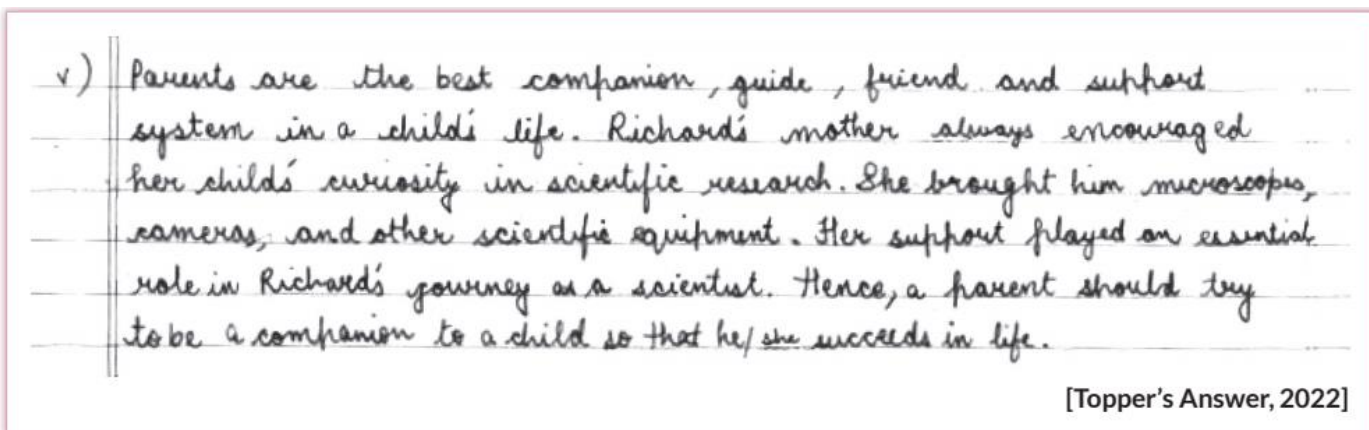 v) Parents are the best companion, guide, friend and support
system in a child's life. Richard's mother always encouraged
her child's curiosity in scientific research. She brought him microscopes,
cameras, and other scientific equipment. Her support played an essential
role in Richard's journey as a scientist. Hence, a parent should try
to be a companion to a child so that he/she succeeds in life.
[Topper's Answer, 2022]